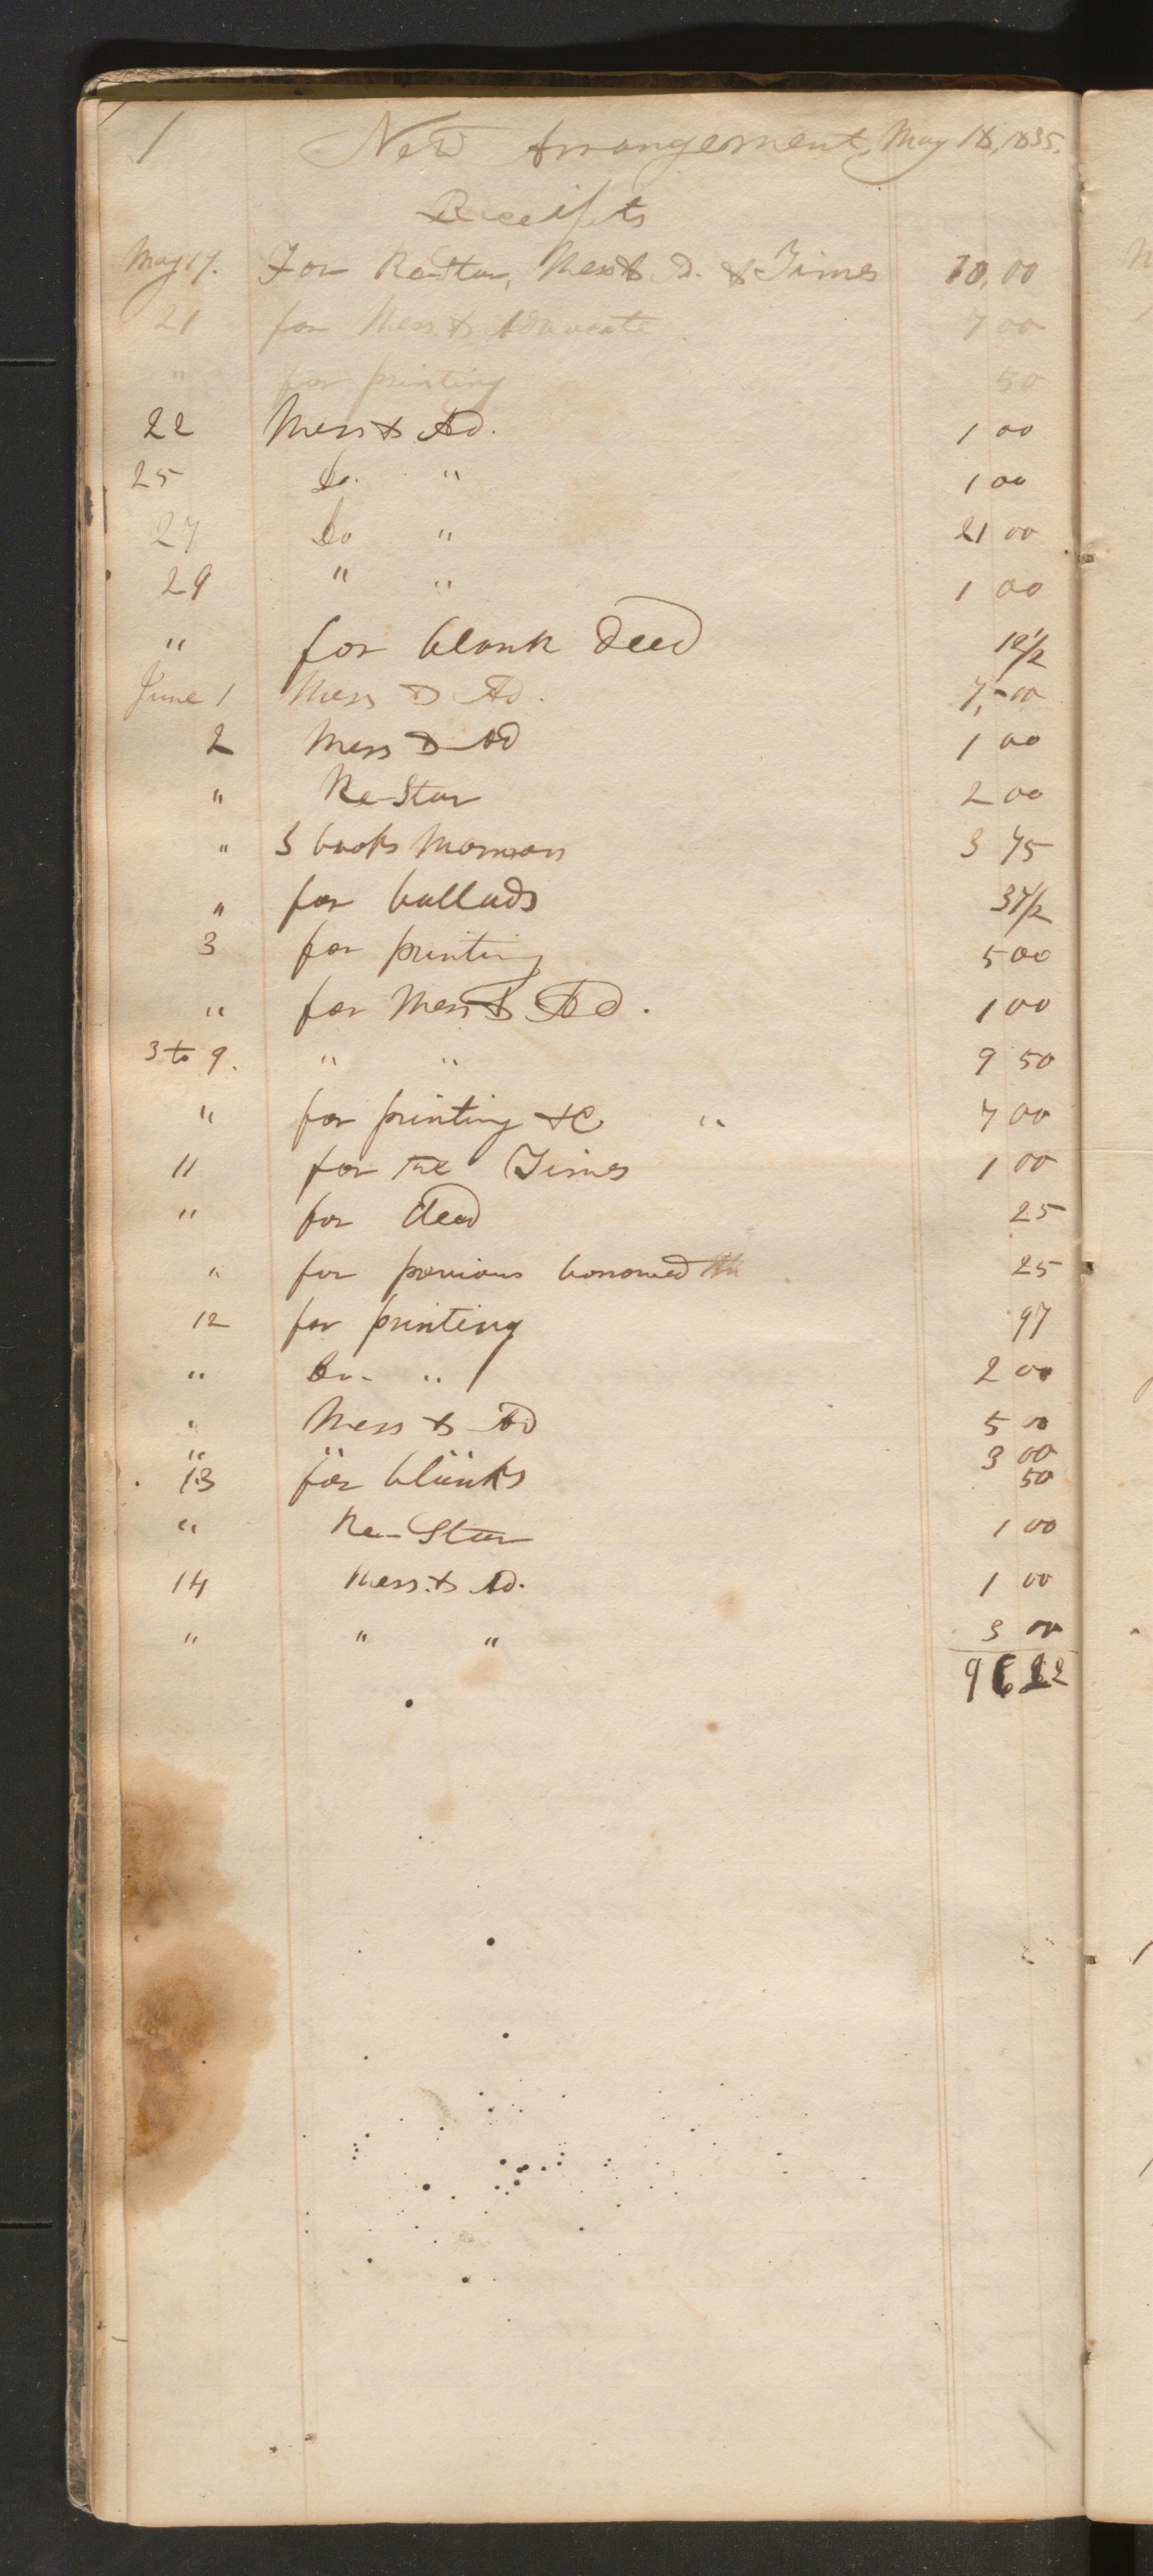 1 New Arrangement, May 18, 1835.
Receipts
May 19. For Re-Star, Mess & A. & Times 10,00
21 for Mess. & Advocate 7 00
" for printing 50
22 Mess & Ad. 1 00
25 Do. " 1 00
27 Do " 21 00
29 " " 1 00
" for blank deed 12 1/2
June 1 Mess & Ad. 7,-00
2 Mess & Ad 1 00
" Re-Star 2 00
" 3 books Mormon 3 75
" for ballads 37 1/2
3 for printing 5 00
" for Mess & Ad. 1 00
3 to 9. " " 9 50
" for printing &c " 7 00
11 for the Times 1 00
" for deed 25
" for previous borrowed 25
12 for printing 97
" Do- " 2 00
" Mess & Ad 5 00
" " " 3 00
13 for blanks 50
" Re-Star 1 00
14 Mess. & Ad. 1 00
" " " 3 00
96 22